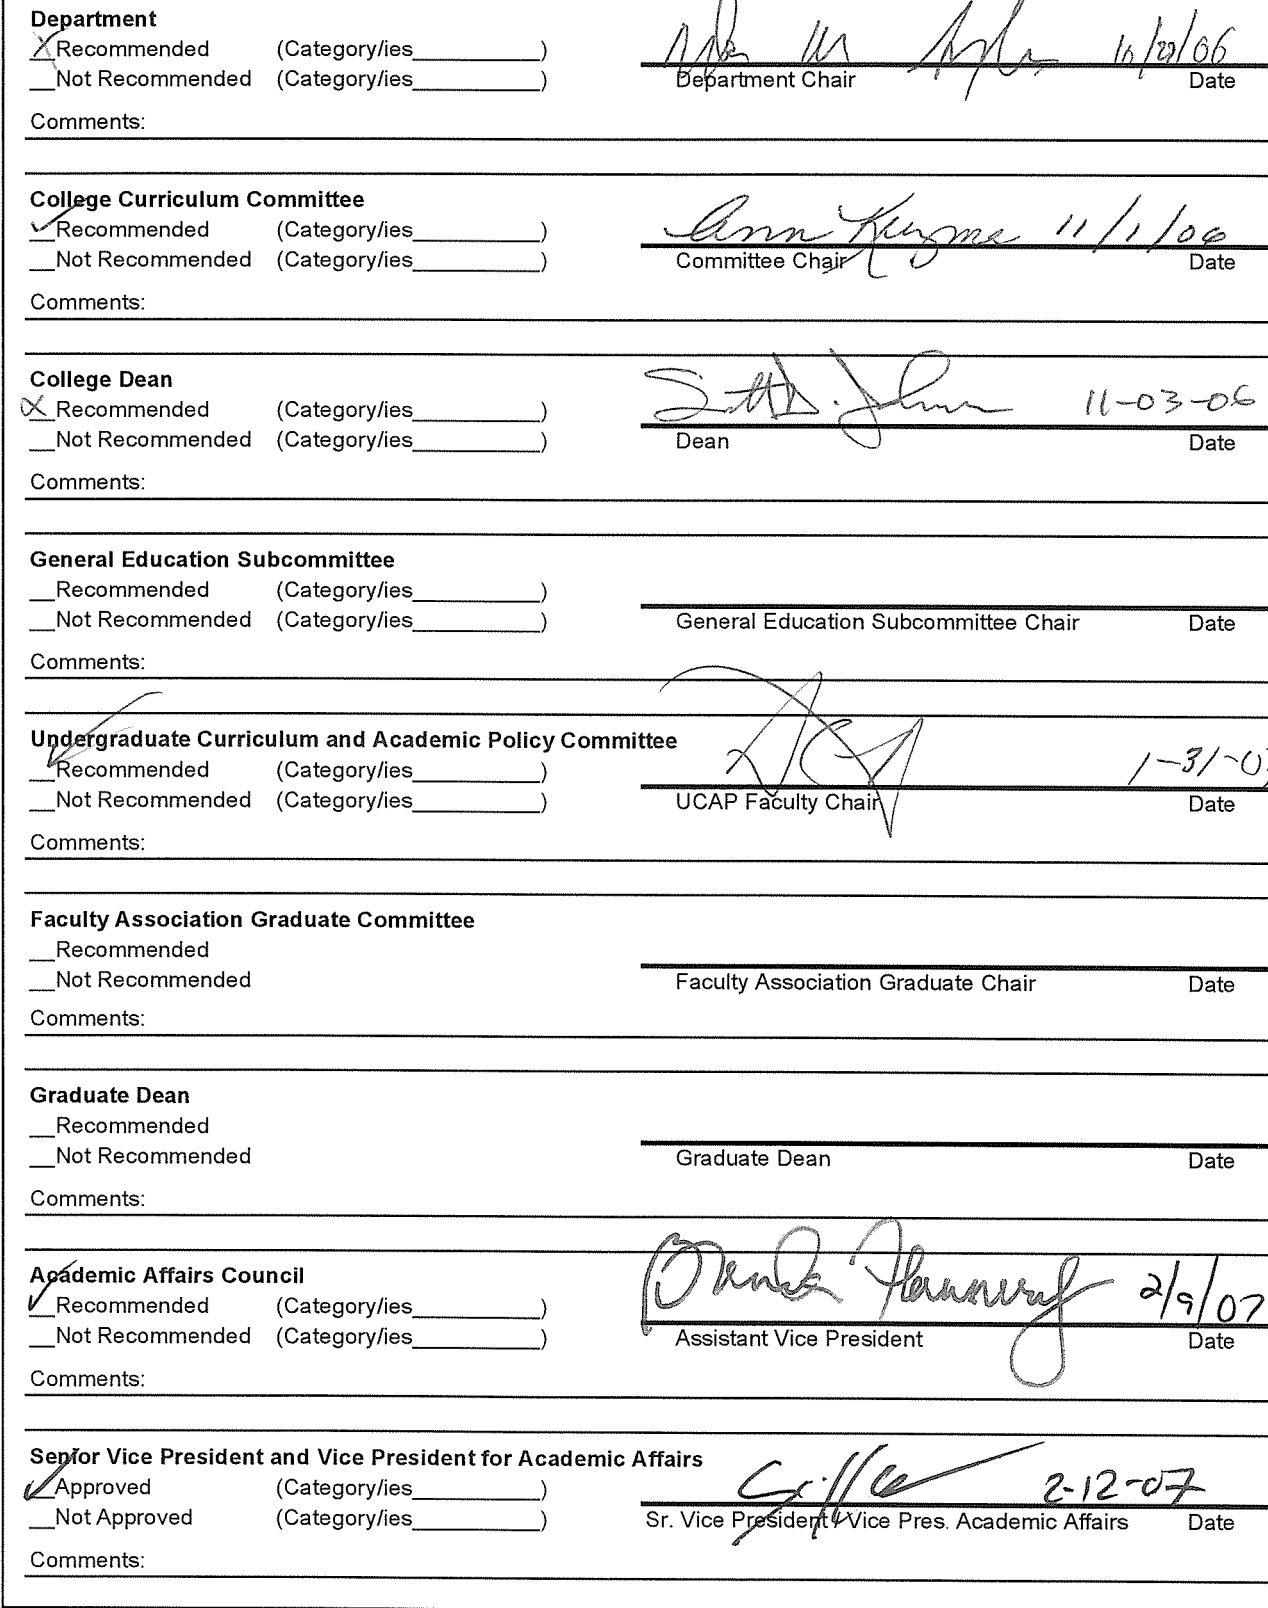 Department
X Recommended (Category/ies__________)
__Not Recommended (Category/ies__________)
Department Chair Date
Comments:
College Curriculum Committee
✓ Recommended (Category/ies__________) Ann Kuzma 11/1/06
__Not Recommended (Category/ies__________) Committee Chair Date
Comments:
College Dean
X Recommended (Category/ies__________) Scott D. Johnson 11-03-06
__Not Recommended (Category/ies__________) Dean Date
Comments:
General Education Subcommittee
__Recommended (Category/ies__________)
__Not Recommended (Category/ies__________) General Education Subcommittee Chair Date
Comments:
Undergraduate Curriculum and Academic Policy Committee
✓ Recommended (Category/ies__________) 1-31-0
__Not Recommended (Category/ies__________) UCAP Faculty Chair Date
Comments:
Faculty Association Graduate Committee
__Recommended
__Not Recommended Faculty Association Graduate Chair Date
Comments:
Graduate Dean
__Recommended
__Not Recommended Graduate Dean Date
Comments:
Academic Affairs Council
✓ Recommended (Category/ies__________) Brenda Flannery 2/9/07
__Not Recommended (Category/ies__________) Assistant Vice President Date
Comments:
Senior Vice President and Vice President for Academic Affairs
✓ Approved (Category/ies__________) 2-12-07
__Not Approved (Category/ies__________) Sr. Vice President / Vice Pres. Academic Affairs Date
Comments: